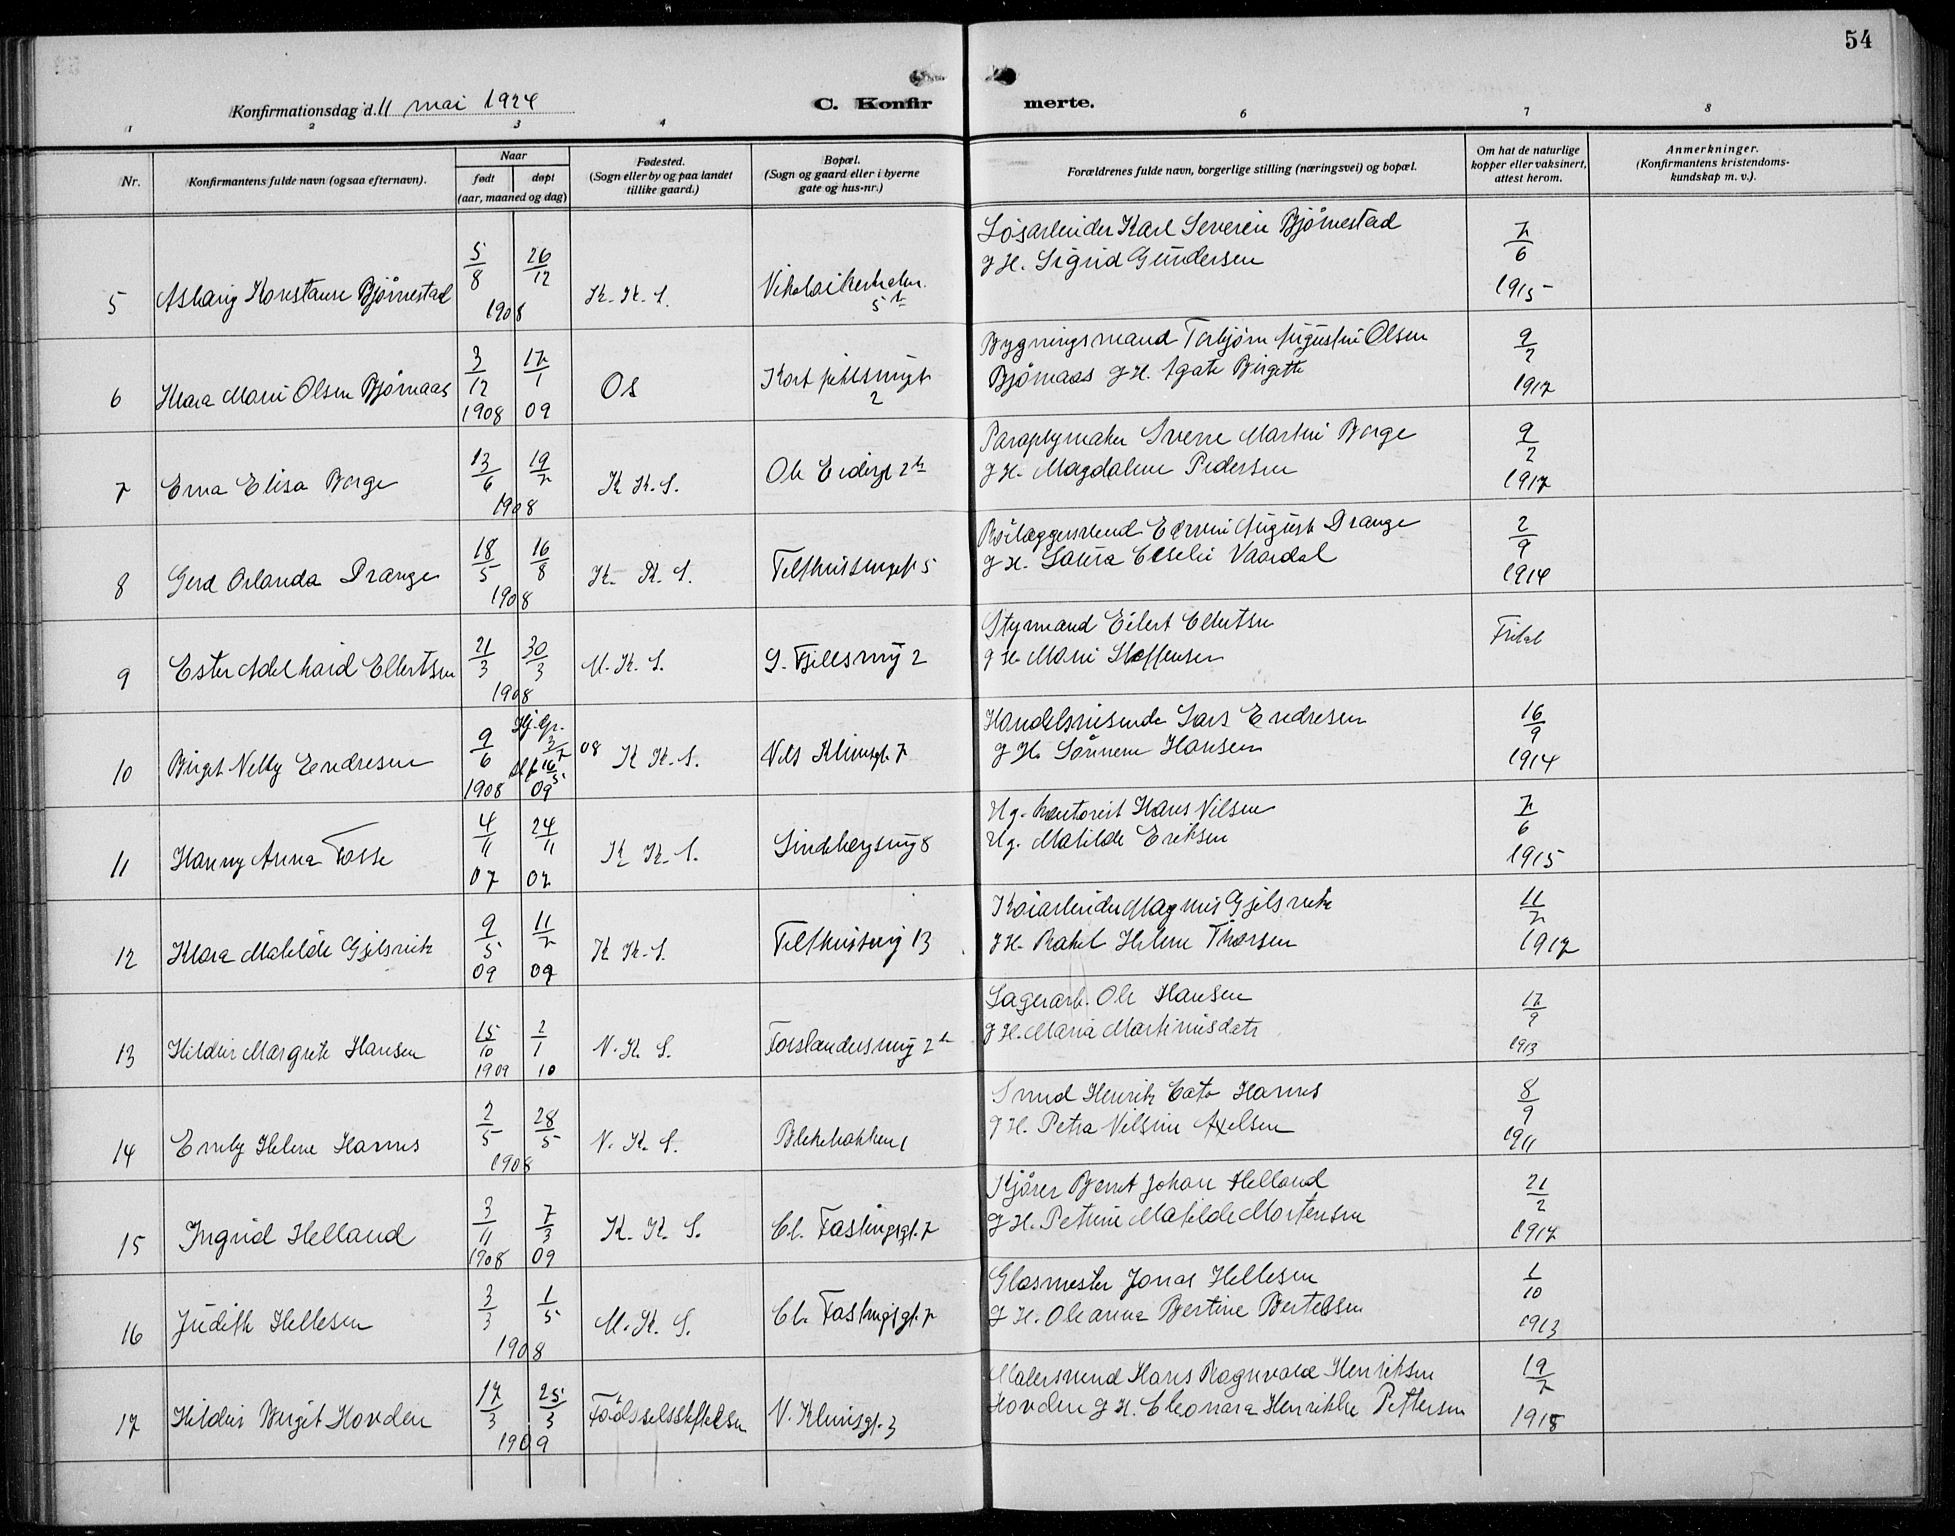 54
Konfirmationsdag d. 11 mai 1924
C. Konfirmerte.
1 2 3 4 6 7 8
Nr.
Konfirmantens fulde navn (ogsaa efternavn).
Naar
født
døpt
(aar, maaned og dag)
Fødested.
(Sogn eller by og paa landet
tillike gaard.)
Bopæl.
(Sogn og gaard eller i byerne
gate og hus-nr.)
Forældrenes fulde navn, borgerlige stilling (næringsvei) og bopæl.
Om hat de naturlige
kopper eller vaksinert,
attest herom.
Anmerkninger.
(Konfirmantens kristendoms-
kundskap m. v.).
5 Aslaug Konstanse Bjørnestad 5/8 26/12 1908 K. K. S.
Løsarbeider Karl Severin Bjørnestad
g H. Sigrid Gundersen
7/6 1915
6 Klara Marie Olsen Bjørnaas 3/12 1908 17/1 09 Os
2
Bygningsmand Torbjørn Augustin Olsen
Bjørnaas g H. Agate Birgitte
9/2 1917
7 Erna Elisa Borge 13/6 19/7 1908 K K. S. Ole
Paraplymaker Sverre Martin Borge
g H. Magdalene Pedersen
9/2 1917
8 Gerd Orlanda Drange 18/5 16/8 1908 K. K. S.
Edvin August Drange
g H. Laura Vaardal
2/9 1914
9 Ester Adelhaid Ellertsen 21/3 30/3 1908 M. K. S. S. Fjellsmug 2
Styrmand Eilert Ellertsen
g H. Marie Steffensen
10 Birgit Nelly Endresen 9/6 1908 Hj. dp. 3/7 08 16/5 09 K K. S. Nels Klimsgt. 7
Handelsreisende Lars Endresen
g H. Hansen
16/9 1914
11 Hanny Anna Fosse 4/11 07 24/11 07 K K. S. Lindebergsmug 8
Ug. kontorist Hans Nilsen
Ug. Matilde Eriksen
7/6 1915
12 Klara Matilde Gjelsvik 9/5 09 11/7 09 K K. S. 13
Magnus Gjelsvik
g H. Rakel Helene Thorsen
11/7 1917
13 Hildur Margrete Hansen 15/10 1909 2/1 10 N. K. S.
Lagerarb. Ole Hansen
g H. Maria Martinusdatr
17/9 1913
14 Emily Helene Harris 2/5 28/5 1908 N. K. S. Blekebakken 1
Smed Henrik Cato Harris
g H. Petra Nilsine Axelsen
8/9 1911
15 Ingrid Helland 3/11 1908 7/3 09 K. K. S. Cl. Fastingsgt. 7
Kjører Bernt Johan Helland
g H. Petrine Matilde Mortensen
21/2 1917
16 Judith Hellesen 3/3 1/5 1908 M. K. S. Cl. Fastingsgt. 7
Glasmester Jonas Hellesen
g H. Oleanna Bertine Bertelsen
1/10 1913
17 Hildur Birgit Hovden 17/3 25/3 1909 Fødselsstiftelsen N. Klimsgt. 3
Malersvend Hans Ragnvald Henriksen
Hovden g H. Eleonara Henrikke Pettersen
19/7 1918